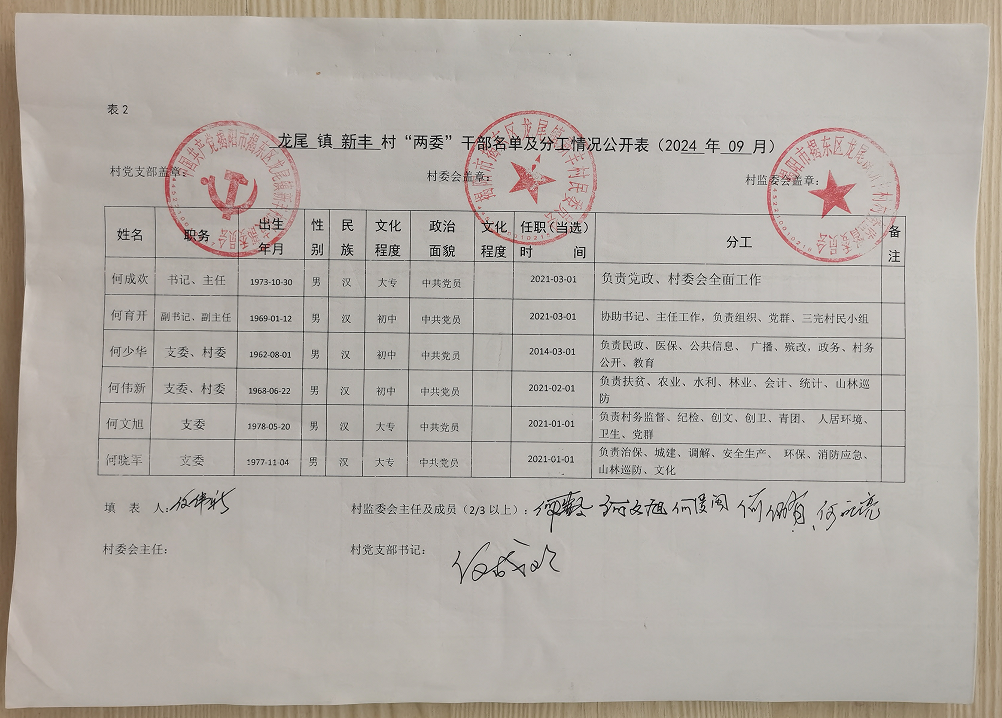 表 2
龙尾 镇 新丰 村 “两委” 干部名单及分工情况公开表（2024 年 09 月）
村党支部盖章： 村委会盖章： 村监委会盖章：
姓名 职务 出生年月 性别 民族 文化程度 政治面貌 文化程度 任职（当选）时 间 分工 备注
何成欢 书记、主任 1973-10-30 男 汉 大专 中共党员 2021-03-01 负责党政、村委会全面工作
何育开 副书记、副主任 1969-01-12 男 汉 初中 中共党员 2021-03-01 协助书记、主任工作，负责组织、党群、三完村民小组
何少华 支委、村委 1962-08-01 男 汉 初中 中共党员 2014-03-01 负责民政、医保、公共信息、 广播、殡改，政务、村务
公开、教育
何伟新 支委、村委 1968-06-22 男 汉 初中 中共党员 2021-02-01 负责扶贫、农业、水利、林业、会计、统计、山林巡
防
何文旭 支委 1978-05-20 男 汉 大专 中共党员 2021-01-01 负责村务监督、纪检、创文、创卫、青团、 人居环境、
卫生、党群
何晓军 支委 1977-11-04 男 汉 大专 中共党员 2021-01-01 负责治保、城建、调解、安全生产、 环保、消防应急、
山林巡防、文化
填 表 人：何伟新 村监委会主任及成员（2/3 以上）：
村委会主任： 村党支部书记：何成欢